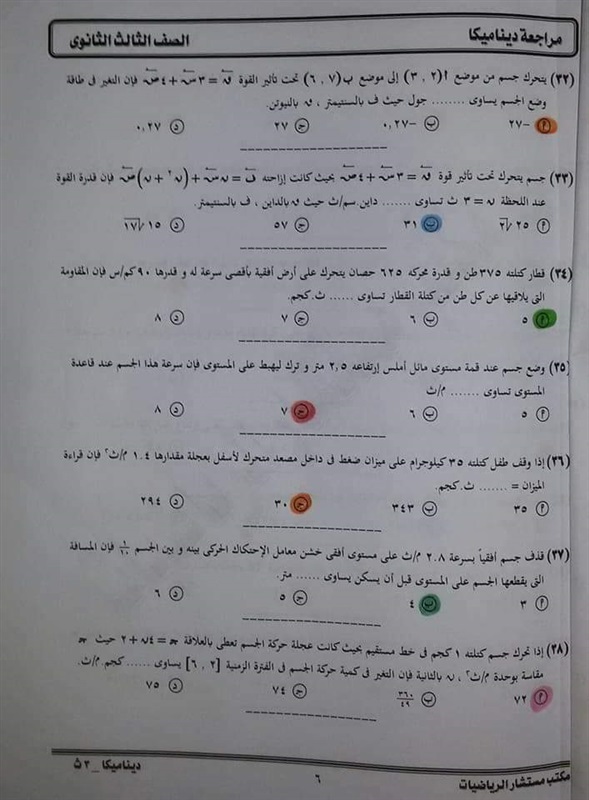 مراجعة ديناميكا
الصف الثالث الثانوى
(٣٢) يتحرك جسم من موضع أ(٢ ، ٣) إلى موضع ب(٧ ، ٦) تحت تأثير القوة ق = ٣س + ٤ص فإن التغير فى طاقة
وضع الجسم يساوى ........ جول حيث ف بالسنتيمتر ، ق بالنيوتن.
أ -٢٧ ب -٠,٢٧ ج ٢٧ د ٠,٢٧
(٣٣) جسم يتحرك تحت تأثير قوة ق = ٣س + ٤ص بحيث كانت إزاحته ف = ن س + (ن٢ + ن) ص فإن قدرة القوة
عند اللحظة ن = ٣ ث تساوى ....... داين.سم/ث حيث ق بالداين ، ف بالسنتيمتر.
أ ٢٥ √٢ ب ٣١ ج ٥٧ د ١٥ √١٧
(٣٤) قطار كتلته ٣٧٥ طن و قدرة محركه ٦٢٥ حصان يتحرك على أرض أفقية بأقصى سرعة له و قدرها ٩٠ كم/س فإن المقاومة
التى يلاقيها عن كل طن من كتلة القطار تساوى ...... ث.كجم.
أ ٥ ب ٦ ج ٧ د ٨
(٣٥) وضع جسم عند قمة مستوى مائل أملس إرتفاعه ٢,٥ متر و ترك ليهبط على المستوى فإن سرعة هذا الجسم عند قاعدة
المستوى تساوى ........ م/ث
أ ٥ ب ٦ ج ٧ د ٨
(٣٦) إذا وقف طفل كتلته ٣٥ كيلوجرام على ميزان ضغط فى داخل مصعد متحرك لأسفل بعجلة مقدارها ١.٤ م/ث٢ فإن قراءة
الميزان = ....... ث.كجم.
أ ٣٥ ب ٣٤٣ ج ٣٠ د ٢٩٤
(٣٧) قذف جسم أفقياً بسرعة ٢.٨ م/ث على مستوى أفقى خشن معامل الإحتكاك الحركى بينه و بين الجسم ١/١٠ فإن المسافة
التى يقطعها الجسم على المستوى قبل أن يسكن يساوى ...... متر.
أ ٣ ب ٤ ج ٥ د ٦
(٣٨) إذا تحرك جسم كتلته ١ كجم فى خط مستقيم بحيث كانت عجلة حركة الجسم تعطى بالعلاقة جـ = ٤ن + ٢ حيث جـ
مقاسة بوحدة م/ث٢ ، ن بالثانية فإن التغير فى كمية حركة الجسم فى الفترة الزمنية [٢ ، ٦] يساوى ...... كجم م/ث.
أ ٧٢ ب ٣٦٠/٤٩ ج ٧٤ د ٧٥
مكتب مستشار الرياضيات
٦
ديناميكا _ ٣ث